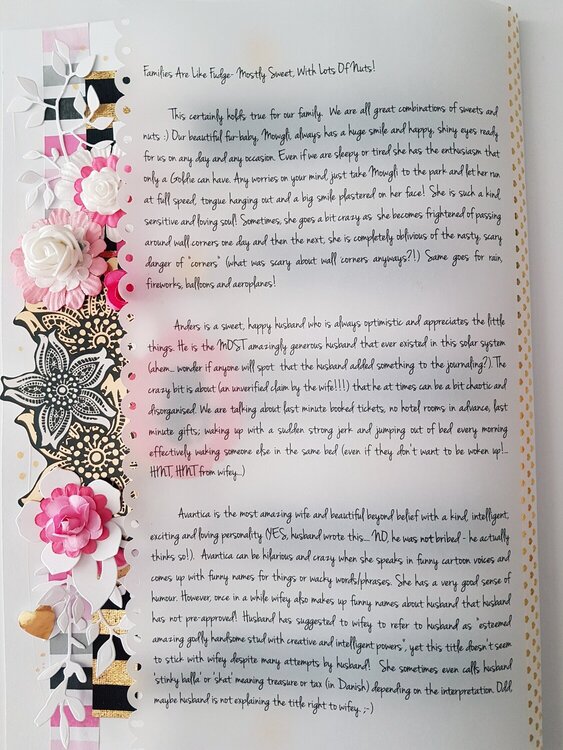 Families Are Like Fudge- Mostly Sweet, With Lots Of Nuts!
This certainly holds true for our family. We are all great combinations of sweets and
nuts :) Our beautiful fur-baby, Mowgli, always has a huge smile and happy, shiny eyes ready
for us on any day and any occasion. Even if we are sleepy or tired she has the enthusiasm that
only a Goldie can have. Any worries on your mind, just take Mowgli to the park and let her run
at full speed, tongue hanging out and a big smile plastered on her face! She is such a kind,
sensitive and loving soul! Sometimes, she goes a bit crazy as she becomes frightened of passing
around wall corners one day and then the next, she is completely oblivious of the nasty, scary
danger of "corners" (what was scary about wall corners anyways?!) Same goes for rain,
fireworks, balloons and aeroplanes!
Anders is a sweet, happy husband who is always optimistic and appreciates the little
things. He is the MOST amazingly generous husband that ever existed in this solar system
(ahem... wonder if anyone will spot that the husband added something to the journaling?). The
crazy bit is about (an unverified claim by the wife!!!) that he at times can be a bit chaotic and
disorganised. We are talking about last minute booked tickets, no hotel rooms in advance, last
minute gifts; waking up with a sudden strong jerk and jumping out of bed every morning
effectively waking someone else in the same bed (even if they don't want to be woken up!...
HINT, HINT from wifey...)
Avantica is the most amazing wife and beautiful beyond belief with a kind, intelligent,
exciting and loving personality (YES, husband wrote this.... NO, he was not bribed - he actually
thinks so!). Avantica can be hilarious and crazy when she speaks in funny cartoon voices and
comes up with funny names for things or wacky words/phrases. She has a very good sense of
humour. However, once in a while wifey also makes up funny names about husband that husband
has not pre-approved! Husband has suggested to wifey to refer to husband as "esteemed
amazing godly handsome stud with creative and intelligent powers", yet this title doesn't seem
to stick with wifey despite many attempts by husband! She sometimes even calls husband
'stinky balla' or 'shat' meaning treasure or tax (in Danish) depending on the interpretation. Odd,
maybe husband is not explaining the title right to wifey. ;-)